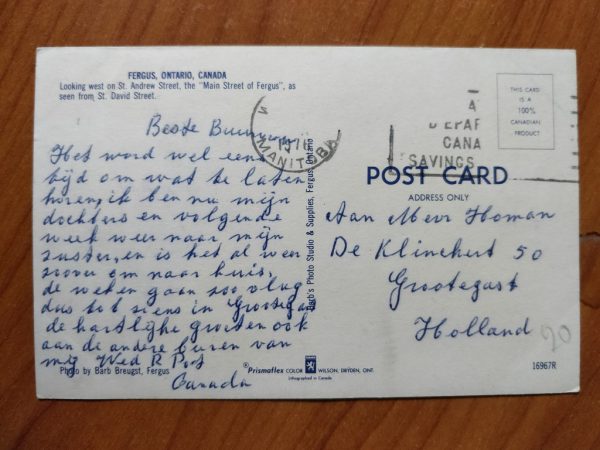 FERGUS, ONTARIO, CANADA
Looking west on St. Andrew Street, the "Main Street of Fergus", as
seen from St. David Street.
THIS CARD
IS A
100%
CANADIAN
PRODUCT
1976
MANITOBA
A
DEPAF
CANA
SAVINGS
POST CARD
ADDRESS ONLY
Beste
Het word wel eens
tijd om wat te laten
horen, ik ben nu mijn
dochters en volgende
week weer naar mijn
zuster, en is het al weer
zoover om naar huis,
de weken gaan zoo vlug
dus tot siens in Grootegast
de hartlijke groeten ook
aan de andere buren van
mij Wed R Pos
Canada
Aan Mevr Homan
De Klinckert 50
Grootegast
Holland
20
Barb's Photo Studio & Supplies, Fergus, Ontario
Photo by Barb Breugst, Fergus
Prismaflex COLOR WILSON, DRYDEN, ONT.
Lithographed in Canada
16967R